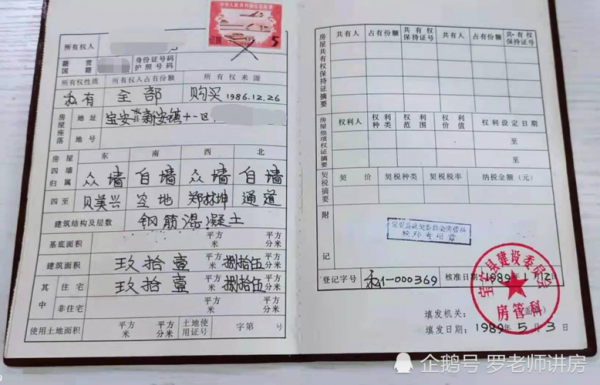 中华人民共和国印花税票
5
所有权人
籍贯 国籍 身份证号码 护照号码
所有权性质 所有权人占有份额 所有权来源
私有 全部 购买 1986.12.26
房屋座落 地址 宝安县新安镇十一区
地号
房屋四墙归属 东 南 西 北
众墙 自墙 众墙 自墙
四至 贝美兴 空地 郑林坤 通道
建筑结构及层数 钢筋混凝土
基底面积 平方米 平方分米
建筑面积 玖拾壹 平方米 捌拾伍 平方分米
其中 住宅 玖拾壹 平方米 捌拾伍 平方分米
非住宅 平方米 平方分米
使用土地面积 平方米 平方分米 土地使用证号 字第 号
房屋共有权保持证摘要
共有人 占有份额 共有权保持证号 共有人 占有份额 共有权保持证号
房屋他项权证摘要
权利人 权利种类 权利范围 权利价值 权利设定日期
至
至
契税摘要
契价 契税税率 纳税金额(元)
附记
登记字号 私1-000369 核准日期 1989年1月12日
宝安县建设委员会
房管科
填发机关:
填发日期: 1989年5月3日
企鹅号 罗老师讲房